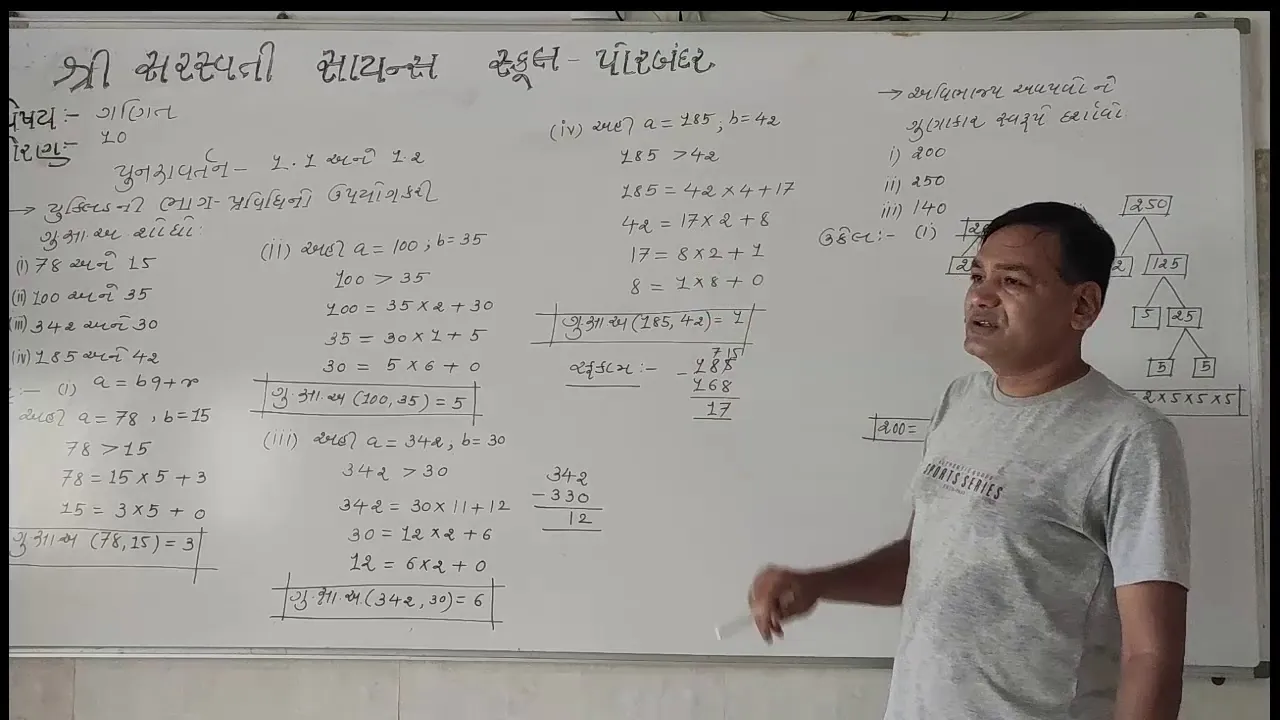 શ્રી સરસ્વતી સાયન્સ સ્કૂલ - પોરબંદર
વિષય:- ગણિત
ધોરણ:- 10
પુનરાવર્તન - 1.1 અને 1.2
→ યુક્લિડની ભાગ-પ્રવિધિનો ઉપયોગ કરી
ગુ.સા.અ શોધો:
(i) 78 અને 15
(ii) 100 અને 35
(iii) 342 અને 30
(iv) 185 અને 42
:- (i) a = bq+r
અહી a = 78 , b = 15
78 > 15
78 = 15 × 5 + 3
15 = 3 × 5 + 0
ગુ.સા.અ (78, 15) = 3
(ii) અહી a = 100 ; b = 35
100 > 35
100 = 35 × 2 + 30
35 = 30 × 1 + 5
30 = 5 × 6 + 0
ગુ.સા.અ (100, 35) = 5
(iii) અહી a = 342, b = 30
342 > 30
342 = 30 × 11 + 12
30 = 12 × 2 + 6
12 = 6 × 2 + 0
ગુ.સા.અ.(342, 30) = 6
342
- 330
12
(iv) અહી a = 185, b = 42
185 > 42
185 = 42 × 4 + 17
42 = 17 × 2 + 8
17 = 8 × 2 + 1
8 = 1 × 8 + 0
ગુ.સા.અ (185, 42) = 1
રફકામ :-
7 15
- 185
168
17
→ અવિભાજ્ય અવયવોનો
ગુણાકાર સ્વરૂપે દર્શાવો:
i) 200
ii) 250
iii) 140
ઉકેલ:- (i)
250
2 125
5 25
5 5
2 × 5 × 5 × 5
200 =
SPORTS SERIES